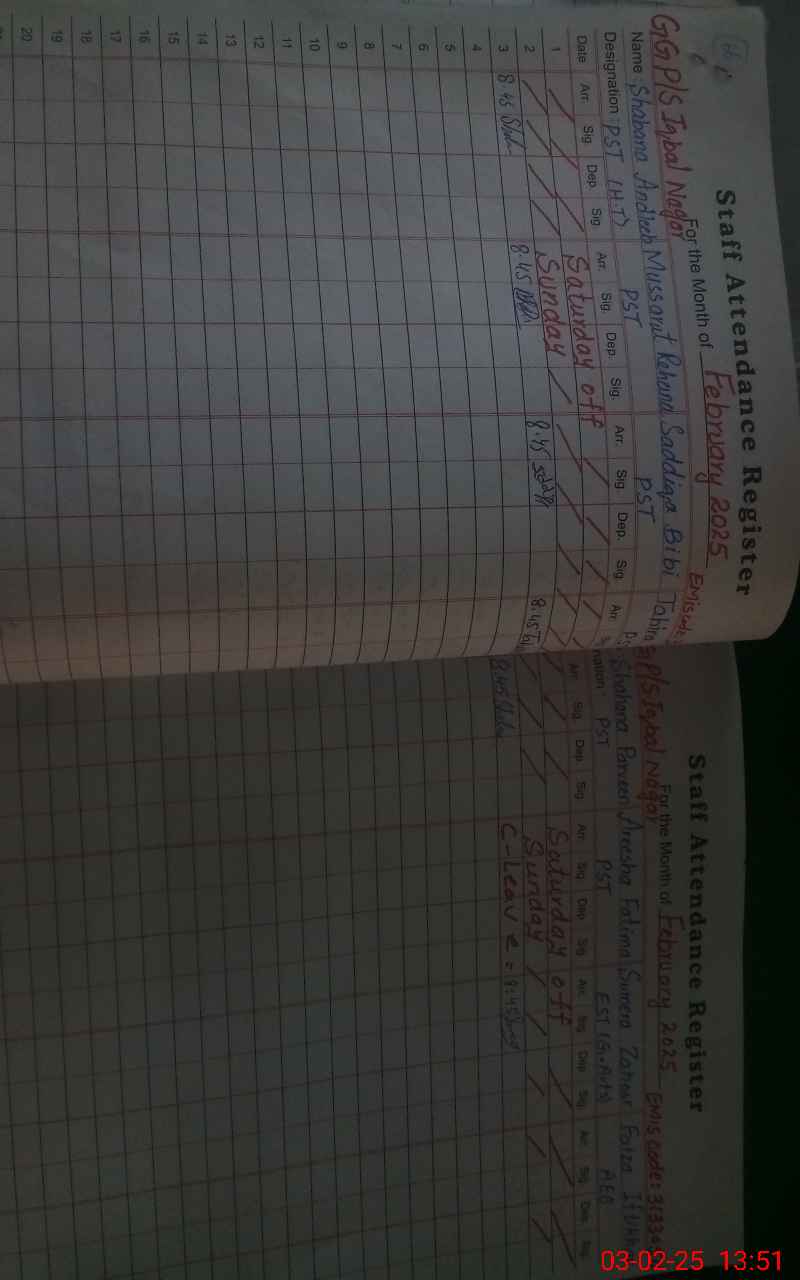 Staff Attendance Register
For the Month of February 2025 EMIS code:
GGP/S Iqbal Nagar
Name: Shabana Andleeb Mussarat Rehana Saddiqa Bibi Tahira
Designation: PST (H.T) PST PST
Date Arr. Sig. Dep. Sig. Arr. Sig. Dep. Sig. Arr. Sig Dep. Sig. Arr
1 Saturday off
2 Sunday
3 8.45 8.45 8.45 8.45
4
5
6
7
8
9
10
11
12
13
14
15
16
17
18
19
20
Staff Attendance Register
For the Month of February 2025 EMIS code:
P/S Iqbal Nagar
Shahana Parveen Areesha Fatima Sumera Zahoor Faiza
nation: PST PST EST (Gr. Arts) AEO
Arr. Sig. Dep. Sig. Arr. Sig. Dep. Sig. Arr. Sig. Dep. Sig. Arr. Sig. Dep. Sig.
Saturday off
Sunday
8.45 C-Leave 8.45
03-02-25 13:51